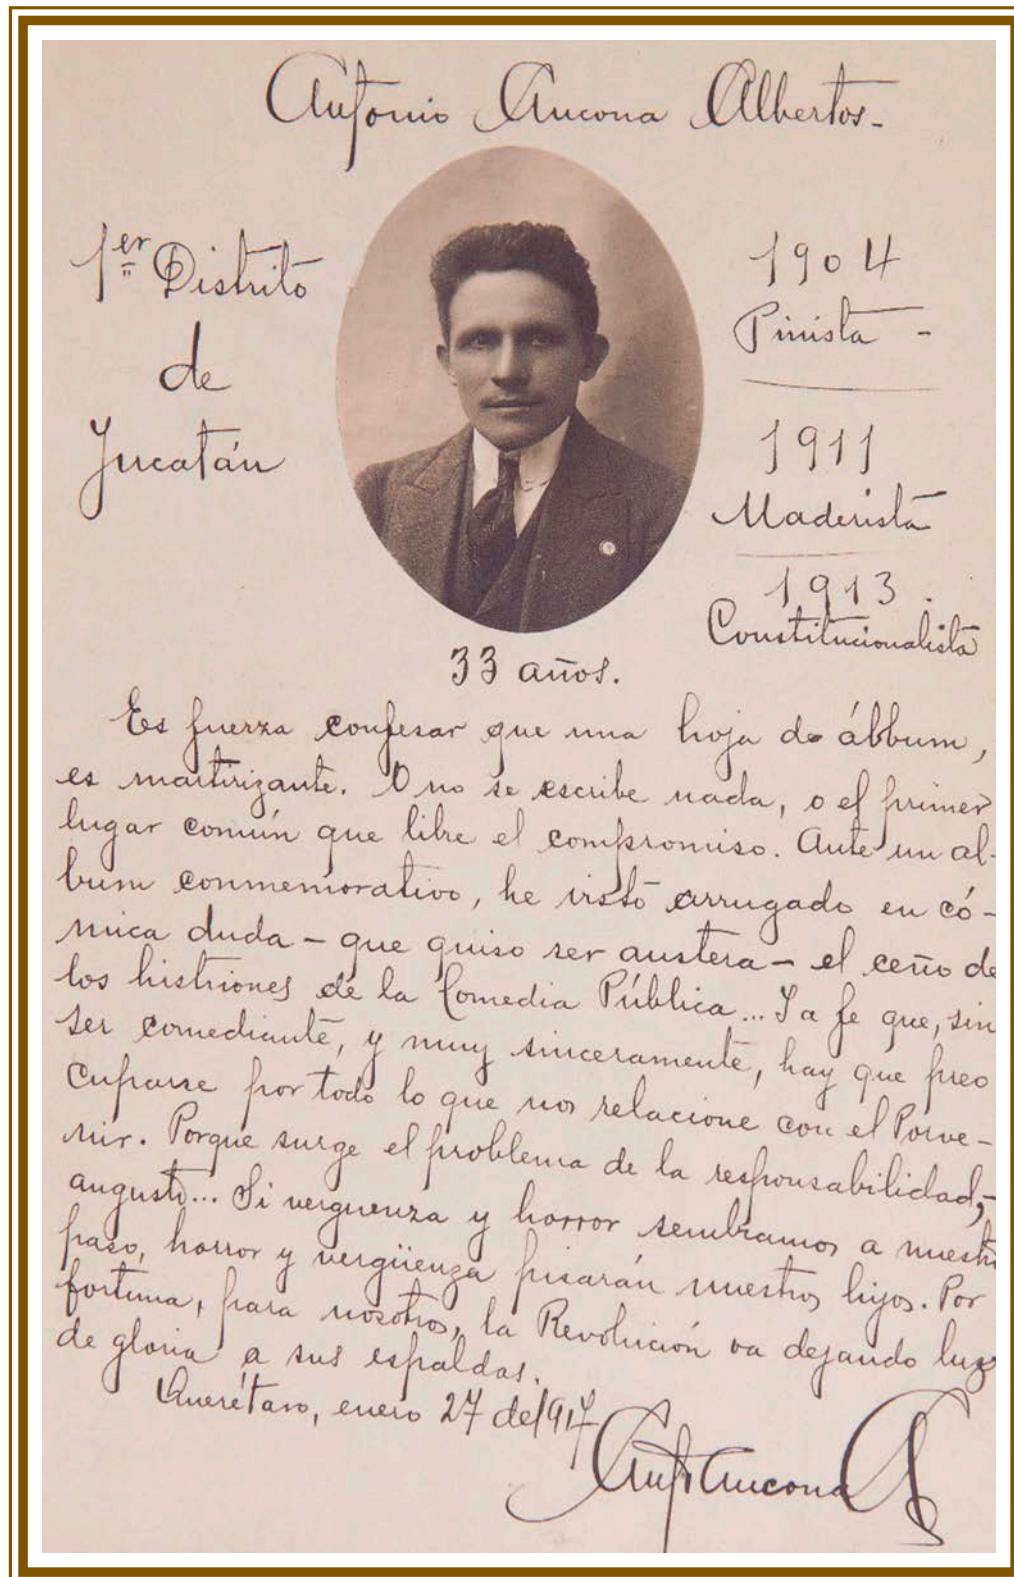 Antonio Ancona Albertos.
1er Distrito
de
Yucatán
1904
Pinista -
1911
Maderista
1913.
Constitucionalista
33 años.
Es fuerza confesar que una hoja de álbbum,
es martirizante. O no se escribe nada, o el primer
lugar común que libre el compromiso. Ante un al-
bum conmemorativo, he visto arrugado en có-
mica duda - que quiso ser austera - el ceño de
los histriones de la Comedia Pública... Y a fe que, sin
ser comediante, y muy sinceramente, hay que preo
cuparse por todo lo que nos relacione con el Porve-
nir. Porque surge el problema de la responsabilidad,
augusto... Si verguenza y horror sembramos a nuestro
paso, horror y vergüenza pisarán nuestros hijos. Por
fortuna, para nosotros, la Revolución va dejando luz
de gloria a sus espaldas.
Querétaro, enero 27 de 1917
Anto Ancona A